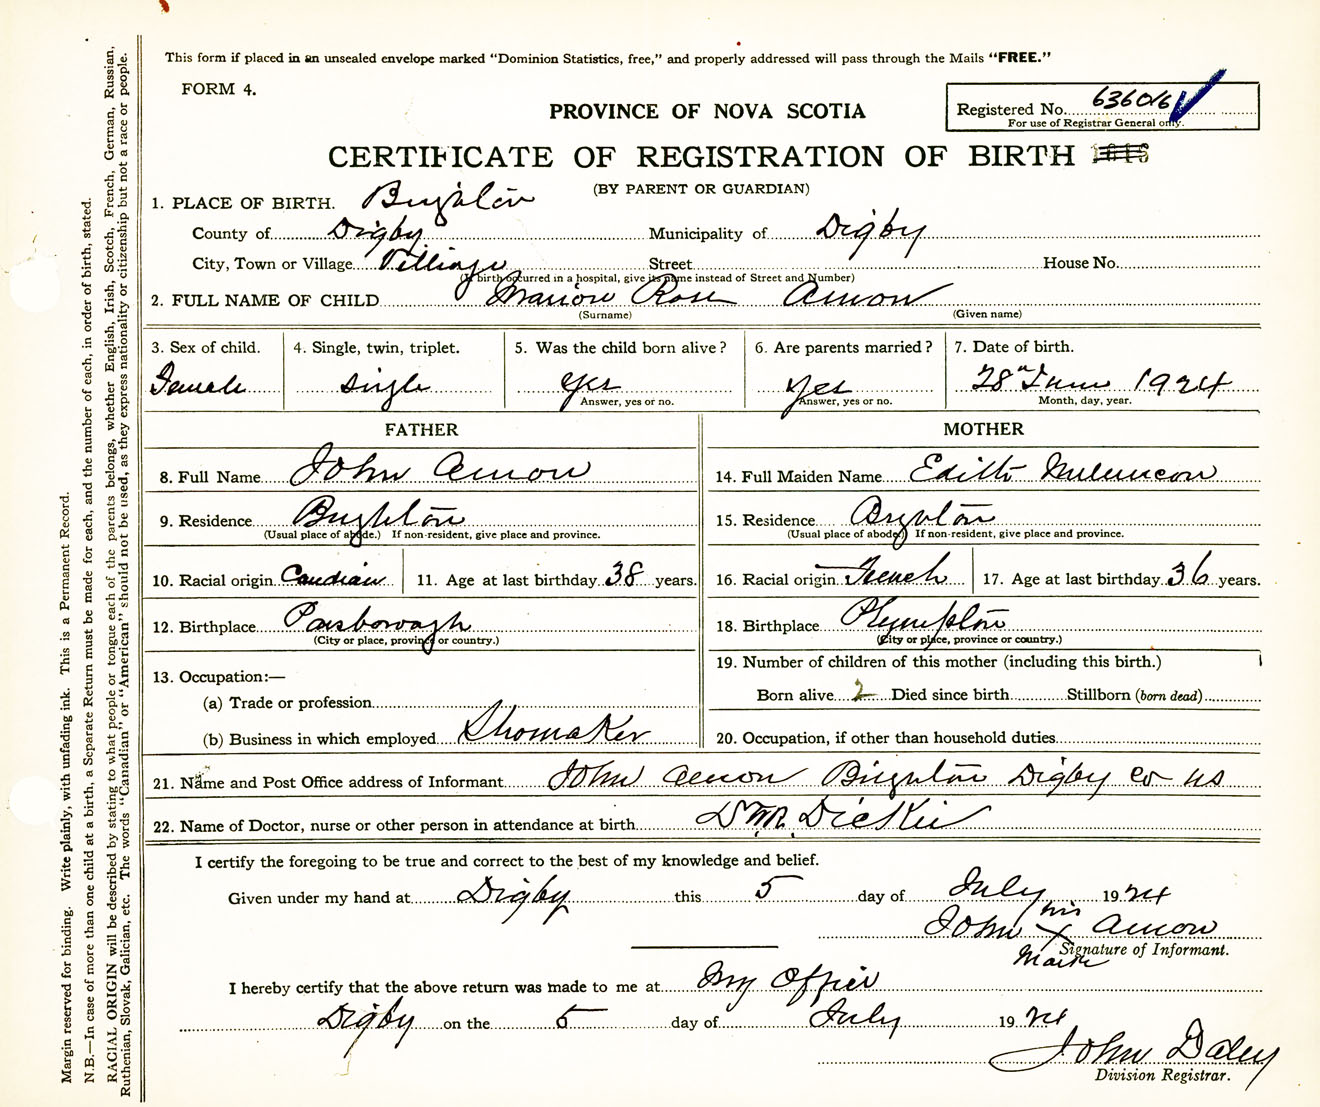 This form if placed in an unsealed envelope marked "Dominion Statistics, free," and properly addressed will pass through the Mails "FREE."
FORM 4.
Registered No. 636016
For use of Registrar General only.
PROVINCE OF NOVA SCOTIA
CERTIFICATE OF REGISTRATION OF BIRTH
(BY PARENT OR GUARDIAN)
1. PLACE OF BIRTH. Brighton
County of Digby Municipality of Digby
City, Town or Village Village Street House No.
(If birth occurred in a hospital, give its name instead of Street and Number)
2. FULL NAME OF CHILD Marion Rose Amon
(Surname) (Given name)
3. Sex of child. 4. Single, twin, triplet. 5. Was the child born alive? 6. Are parents married? 7. Date of birth.
Female single yes yes 28" June 1924
Answer, yes or no. Answer, yes or no. Month, day, year.
FATHER MOTHER
8. Full Name John Amon 14. Full Maiden Name Edith
9. Residence Brighton 15. Residence Brighton
(Usual place of abode.) If non-resident, give place and province. (Usual place of abode) If non-resident, give place and province.
10. Racial origin Candian 11. Age at last birthday 38 years. 16. Racial origin French 17. Age at last birthday 36 years.
12. Birthplace Parsborough 18. Birthplace Plympton
(City or place, province or country.) (City or place, province or country.)
13. Occupation:— 19. Number of children of this mother (including this birth.)
(a) Trade or profession Born alive 2 Died since birth Stillborn (born dead)
(b) Business in which employed Shomaker 20. Occupation, if other than household duties
21. Name and Post Office address of Informant John Amon Brighton Digby co NS
22. Name of Doctor, nurse or other person in attendance at birth Dr M. Dickie
I certify the foregoing to be true and correct to the best of my knowledge and belief.
Given under my hand at Digby this 5 day of July 1924
John his X Amon
Mark
Signature of Informant.
I hereby certify that the above return was made to me at My Office
Digby on the 5 day of July 1924
John Daley
Division Registrar.
Margin reserved for binding. Write plainly, with unfading ink. This is a Permanent Record.
N.B.—In case of more than one child at a birth, a Separate Return must be made for each, and the number of each, in order of birth, stated.
RACIAL ORIGIN will be described by stating to what people or tongue each of the parents belongs, whether English, Irish, Scotch, French, German, Russian,
Ruthenian, Slovak, Galician, etc. The words "Canadian" or "American" should not be used, as they express nationality or citizenship but not a race or people.